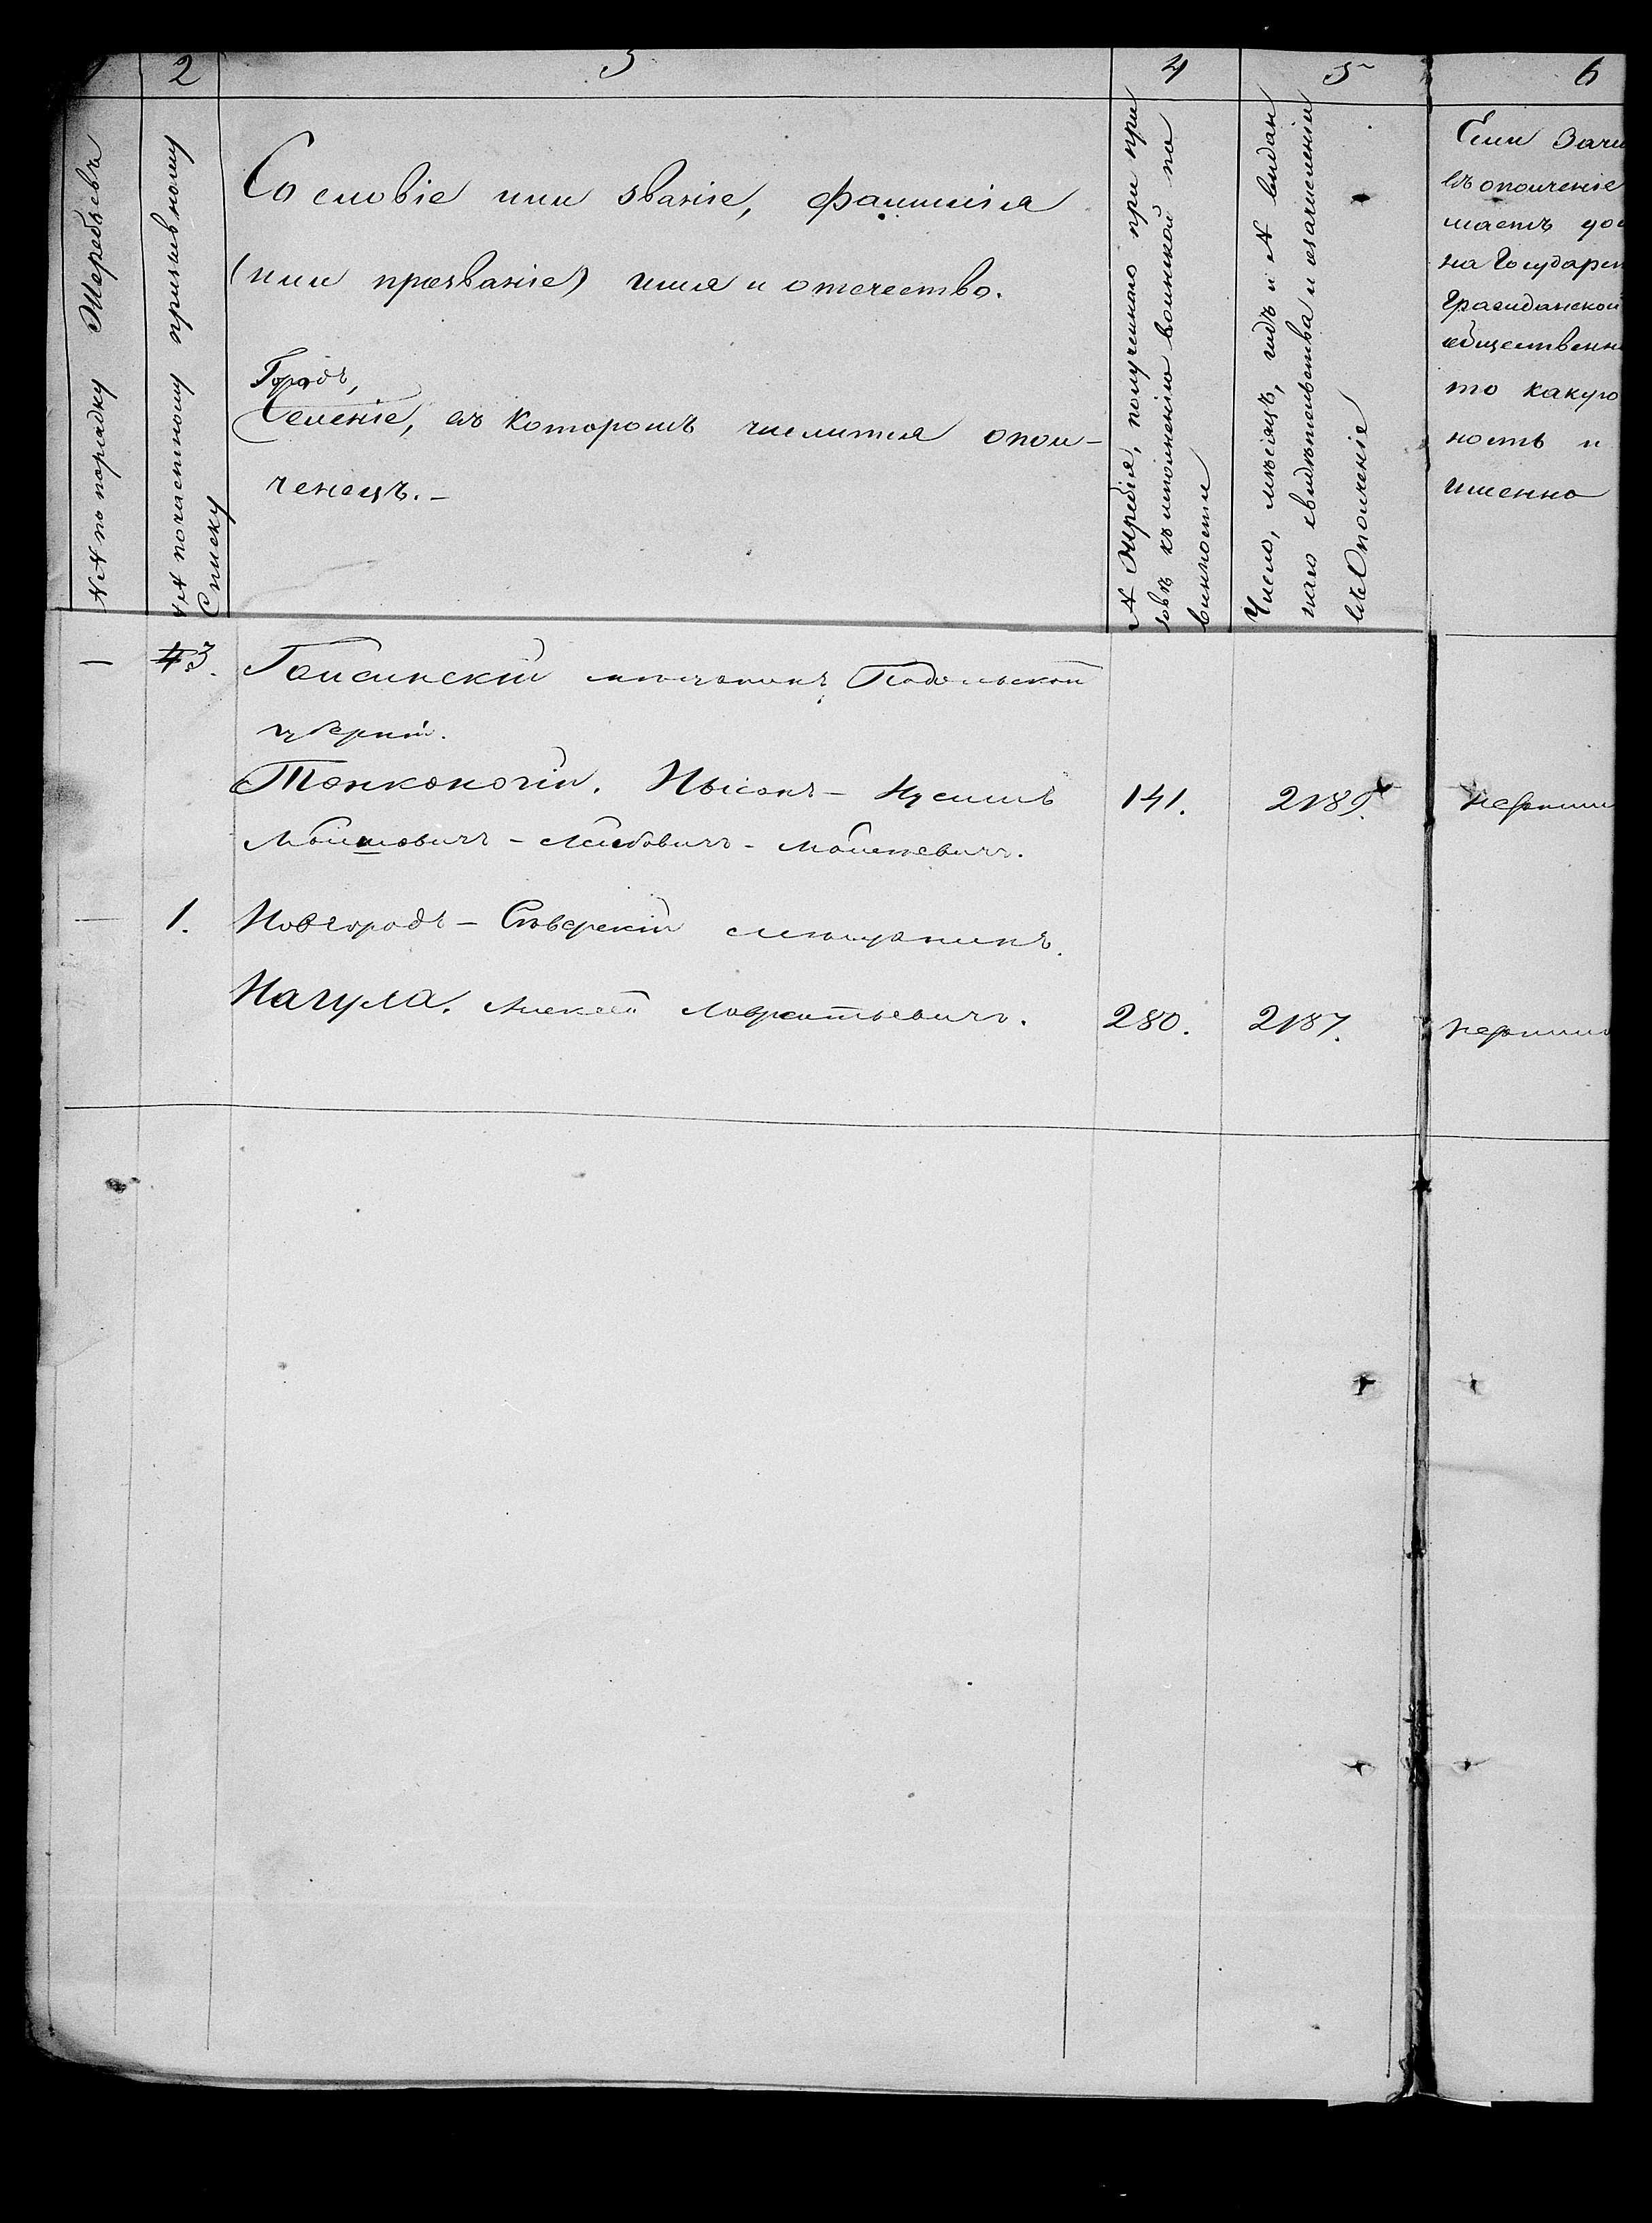 1
2
3
4
5
6
№№ по порядку Жеребьевъ
№№ почастному призывному
Списку
Сословіе или званіе, фамилія
(или прозваніе) имя и отечество.
Городъ,
Селеніе, въ которомъ числится опол-
ченецъ.-
№ Жеребія, полученнаго при при
зывѣ къ исполненію воинской по
винности
Число, мѣсяцъ, годъ и № выдан
наго свидѣтельства о зачисленіи
въ Ополченіе
Если зачи
въ ополченіе
маетъ дол
на Государст
Гражданской
общественн
то какую
ность и
именно
— 43. Гайсинскій мѣщанинъ, Подольской
губерніи.
Тонконогій. Нысонъ- Нусимъ 141. 2189.
Мошковичъ - Лейбовичъ - Мошковичъ.
— 1. Новгородъ-Сѣверскій мѣщанинъ.
Нагула. Алексѣй Лаврентьевичъ. 280. 2187.